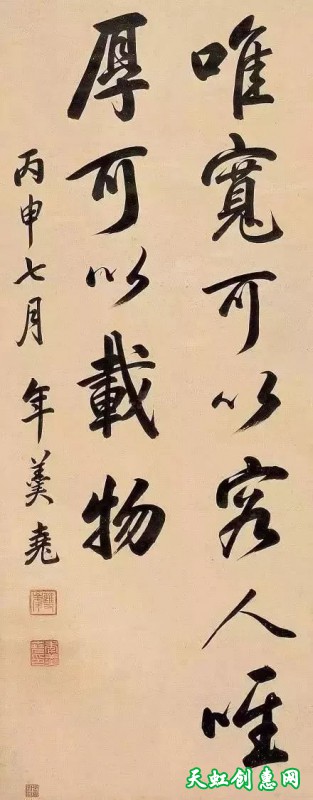 唯寬可以容人唯
厚可以載物
丙申七月 年羹堯
天虹创惠网